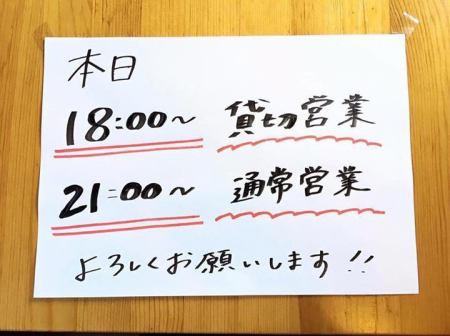 本日
18:00〜 貸切営業
21:00〜 通常営業
よろしくお願いします!!